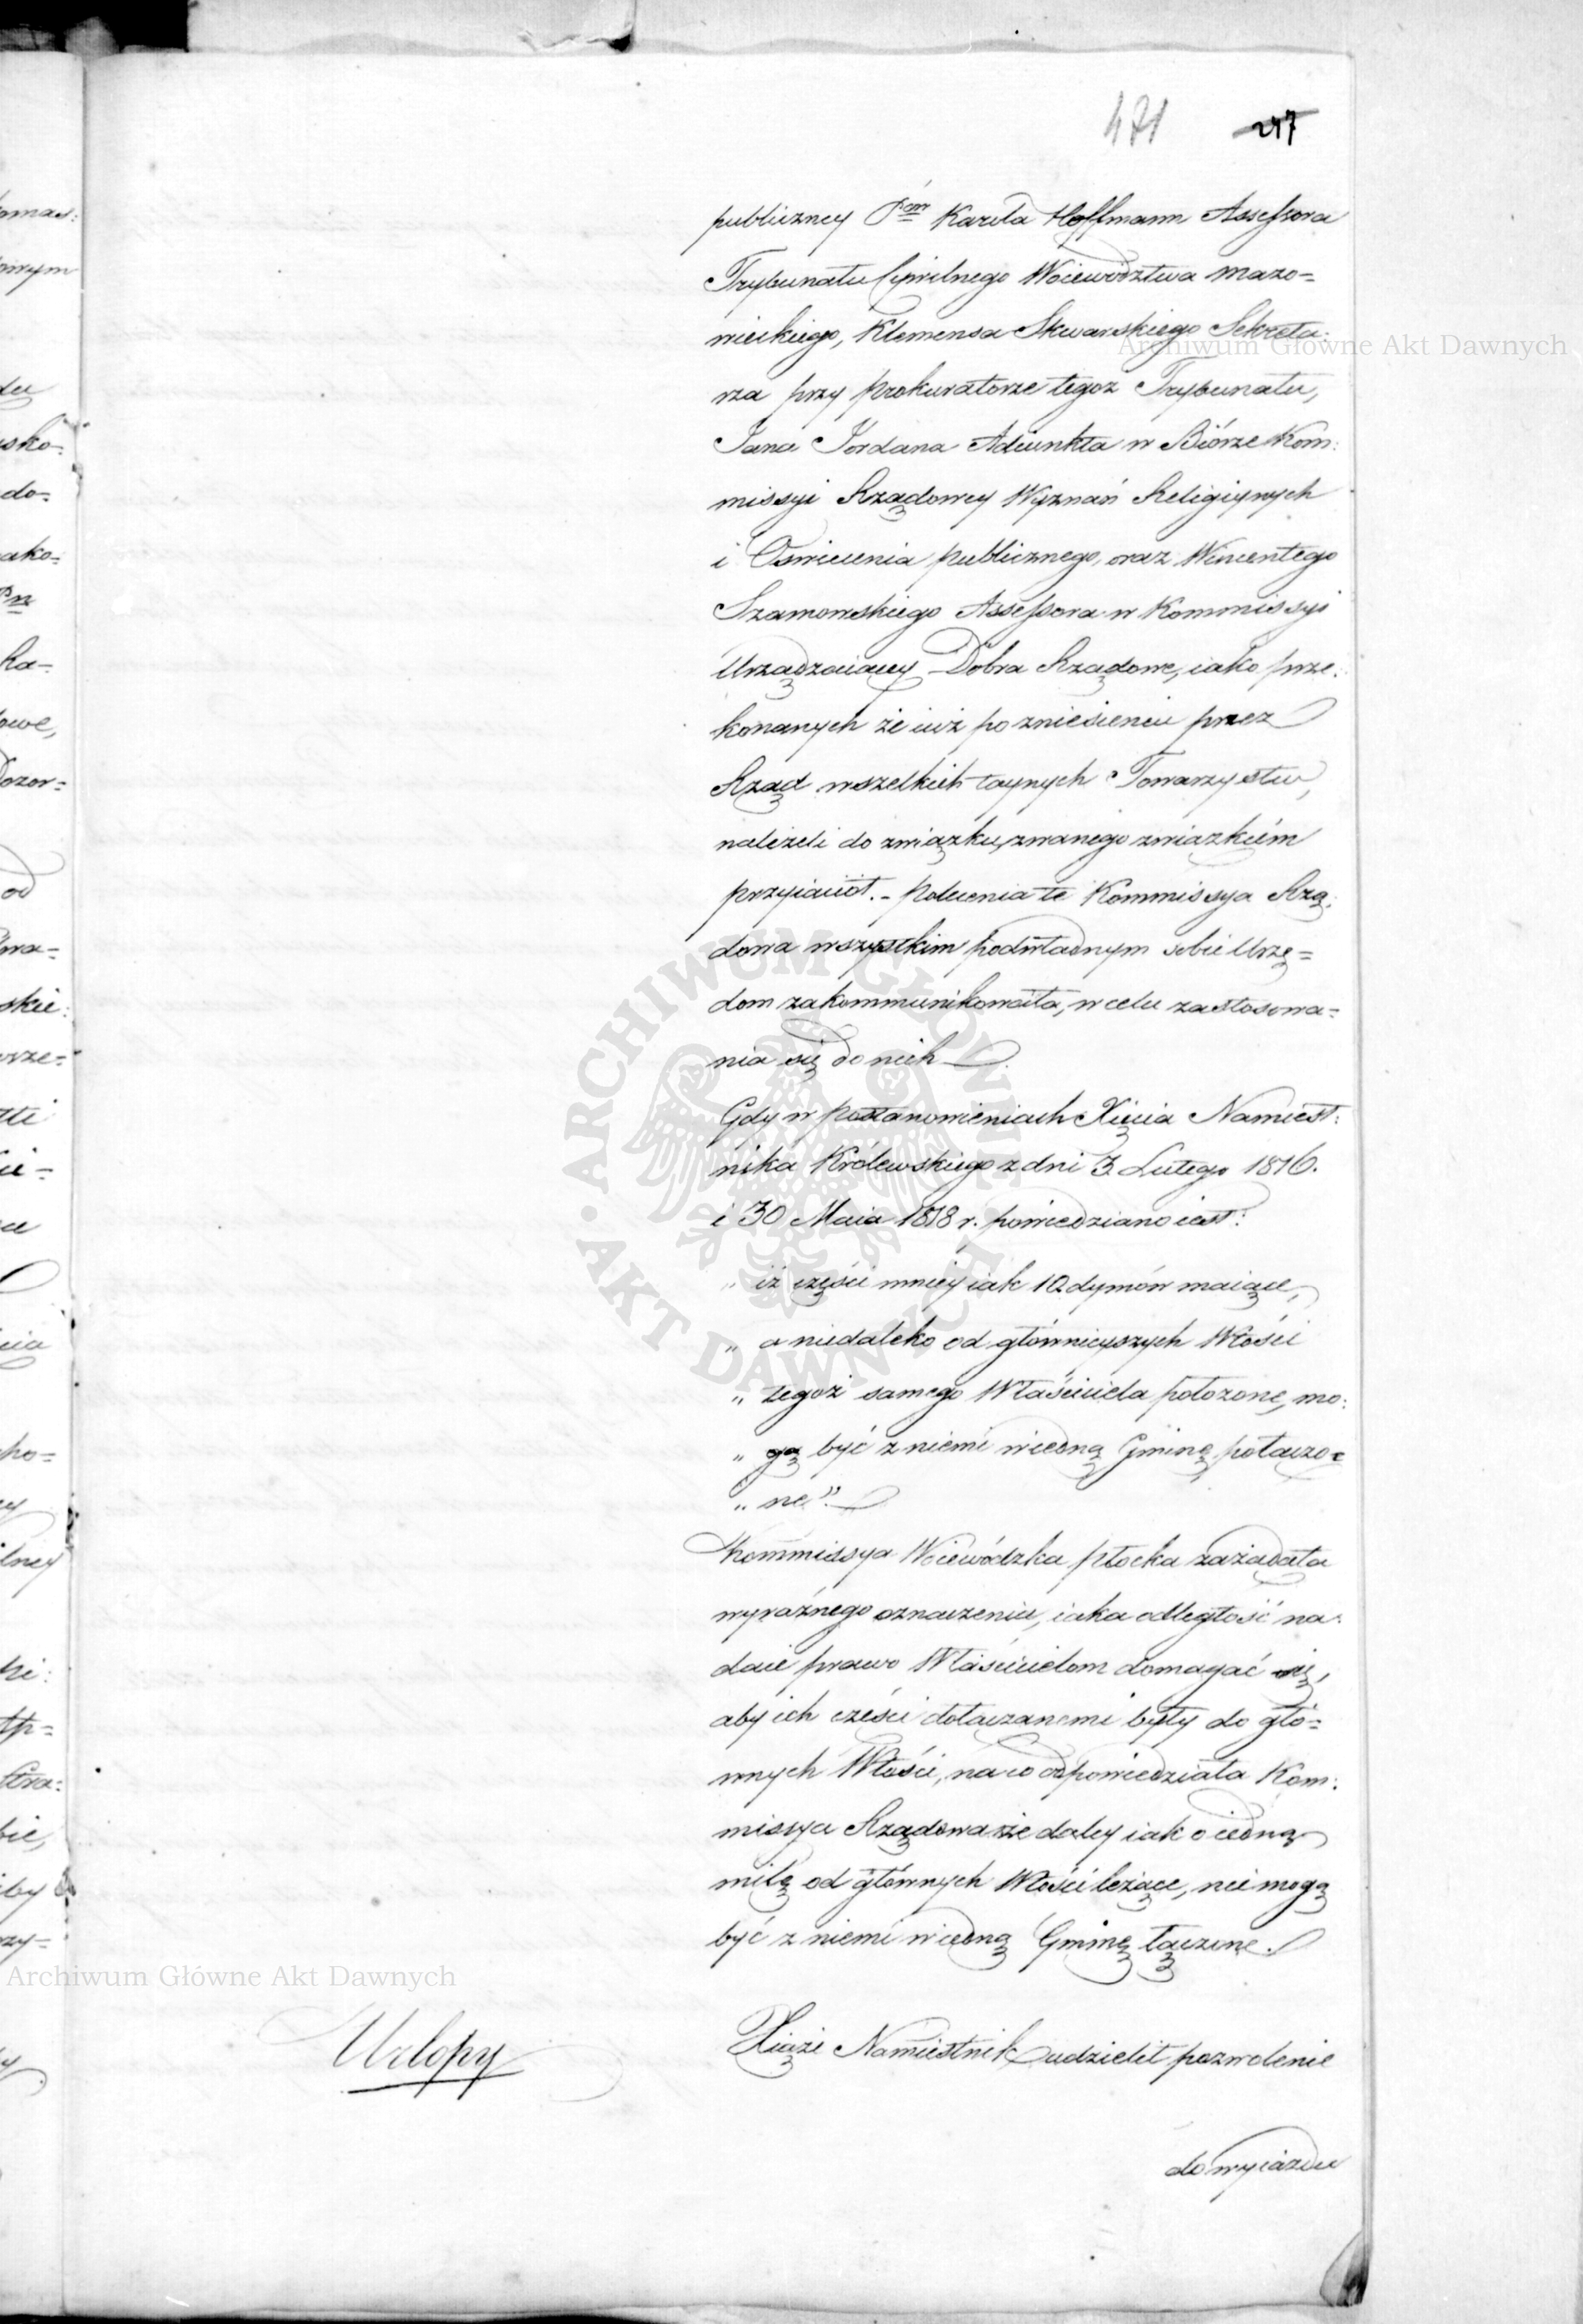 471 247
publiczney Pem Karola Hoffmann Assessora
Trybunału Cywilnego Woiewództwa Mazo=
wieckiego, Klemensa Skwarskiego Sekreta:
rza przy Prokuratorze tegoz Trybunału,
Jana Jordana Adiunkta w Biórze Kom:
missyi Rządowey Wyznań Religiynych
i Oswiecenia publicznego, oraz Wincentego
Szamowskiego Assessora w Kommissyi
Urządzaiącey Dobra Rządowe, iako prze:
konanych że iuż po zniesieniu przez
Rząd wszelkich taynych Towarzystw,
należeli do związku, zwanego związkiem
przyiaciół. - Polecenia te Kommissya Rzą:
dowa wszystkim podwładnym sobie Urzę=
dom zakommunikowała, w celu zastosowa=
nia się do nich
Gdy w postanowieniach Xięcia Namiest:
nika Królewskiego z dni 3 Lutego 1816.
i 30 Maia 1818 r. powiedziano iest:
„ iż części mniey iak 10 dymów maiące,
„ a niedaleko od głównieyszych Włości
„ tegoż samego Właściciela położone, mo:
„ gą być z niemi w iedną Gminę połączo=
„ ne".
Kommissya Woiewódzka Płocka zażądała
wyraźnego oznaczenia, iaka odległość na:
daie prawo Właścicielom domagać się,
aby ich części dołączanemi były do głó=
wnych Włości, na co odpowiedziała Kom:
missya Rządowa że daley iak o iedną
milę od głównych Włości leżące, nie mogą
być z niemi w iedną Gminę łączone.
Urlopy
Xiąże Namiestnik udzielił pozwolenie
do wyiazdu
Archiwum Główne Akt Dawnych
Archiwum Główne Akt Dawnych
ARCHIWUM GŁÓWNE • AKT DAWNYCH •